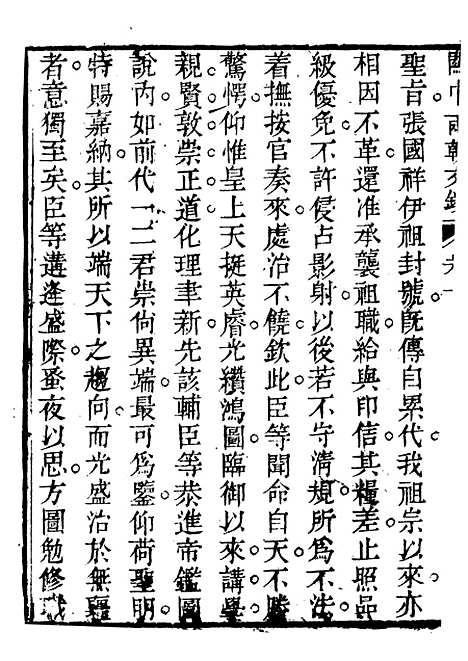 關中兩朝文鈔 卷一
聖旨張國祥伊祖封號。旣傳自累代。我祖宗以來。亦
相因不革。還准承襲祖職。給與印信。其糧差止照品
級優免。不許侵占影射。以後若不守淸規。所爲不法。
着撫按官奏來處治不饒。欽此。臣等聞命自天。不勝
驚愕。仰惟皇上天挺英睿。光纘鴻圖。臨御以來。講學
親賢。敦崇正道。化理聿新。先該輔臣等恭進帝鑑圖
說。內如前代一二君崇尙異端。最可爲鑒。仰荷聖明
特賜嘉納。其所以端天下之趨向而光盛治於無疆
者。意獨至矣。臣等遘逢盛際。蚤夜以思。方圖勉修職